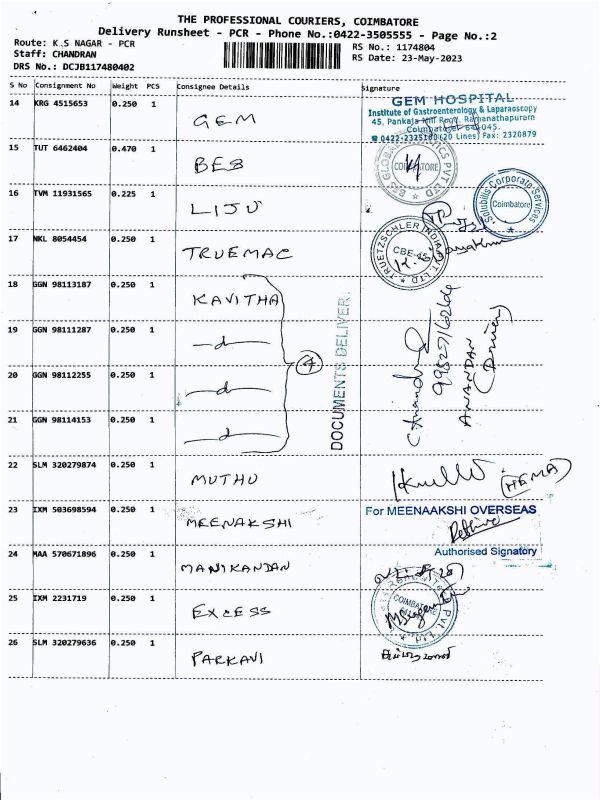 THE PROFESSIONAL COURIERS, COIMBATORE
Delivery Runsheet - PCR - Phone No.:0422-3505555 - Page No.:2
Route: K.S NAGAR - PCR
RS No.: 1174804
Staff: CHANDRAN
RS Date: 23-May-2023
DRS No.: DCJB117480402
S No Consignment No Weight PCS Consignee Details Signature
14 KRG 4515653 0.250 1 GEM
GEM HOSPITAL
Institute of Gastroenterology & Laparoscopy
45, Pankaja Mill Road, Ramanathapuram
Coimbatore 641045.
0422-2325100 (20 Lines) Fax: 2320879
15 TUT 6462404 0.470 1 BEB
COIMBATORE
PVT LTD
16 TVM 11931565 0.225 1 LIJU
Solubilis Corporate Services
Coimbatore
17 NKL 8054454 0.250 1 TRUEMAC
TRUETZSCHLER INDIA PVT. LTD
CBE-45
18 GGN 98113187 0.250 1 KAVITHA
19 GGN 98111287 0.250 1 -d-
20 GGN 98112255 0.250 1 -d-
21 GGN 98114153 0.250 1 -d-
4
DOCUMENTS DELIVER.
ANANDAN
(Driver)
22 SLM 320279874 0.250 1 MUTHU
(HEMA)
23 IXM 503698594 0.250 1 MEENAKSHI
For MEENAAKSHI OVERSEAS
Authorised Signatory
24 MAA 570671896 0.250 1 MANIKANDAN
25 IXM 2231719 0.250 1 EXCESS
COIMBATORE
Pvt Ltd
26 SLM 320279636 0.250 1 PARKAVI